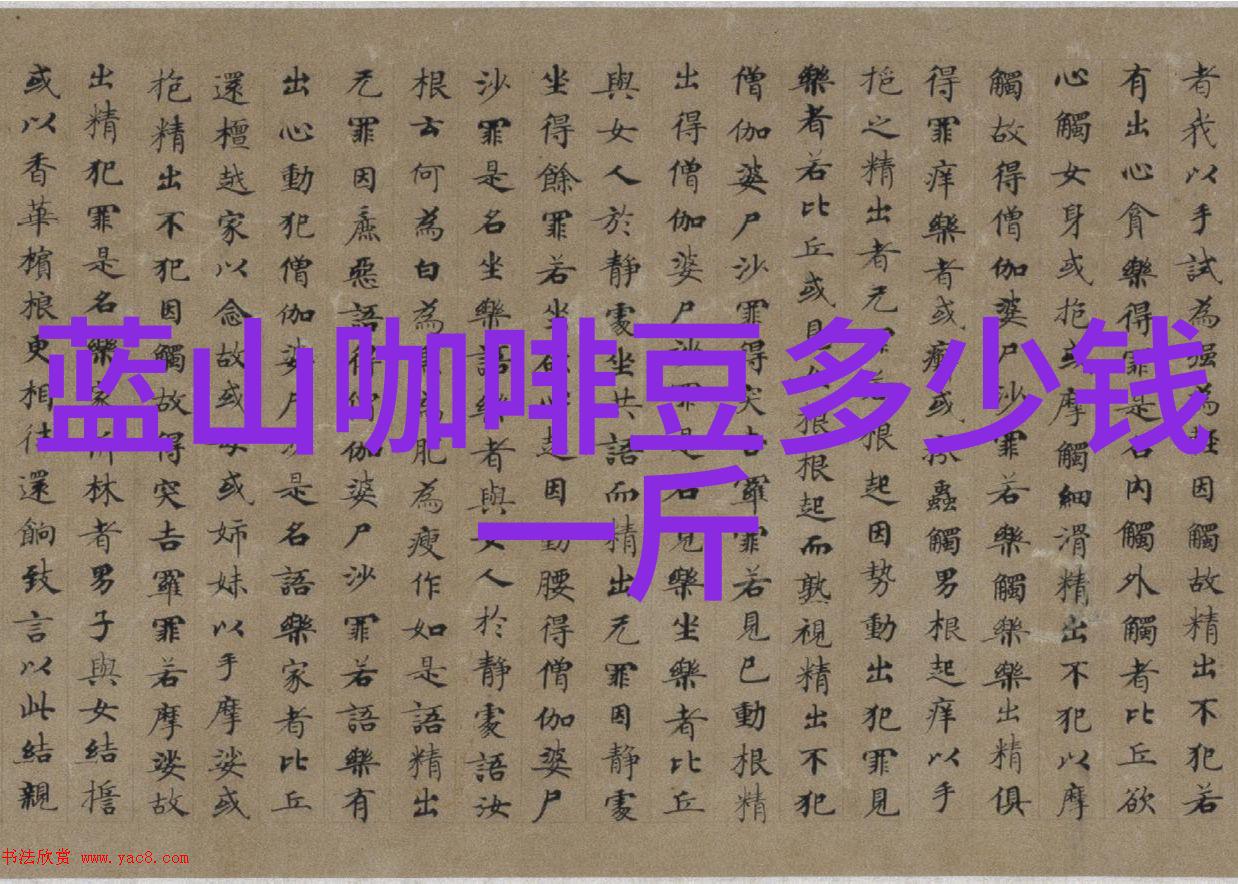 蓝山咖啡豆多少钱
一斤
者我以手試為強為因觸故精出不犯若
有出心貪樂得罪是名內觸外觸者比丘欲
心觸女身或抱或摩觸細滑精出不犯以摩
觸故得僧伽婆尸沙罪若樂觸樂樂出精俱
得罪痒樂者或瘡或蟲觸男根起痒以手
抱之精出者无根起因势動出犯罪見
樂者若比丘或見根根起而熟視精出不犯
僧伽婆尸沙罪得突吉羅罪若見已動根精
出得僧伽婆尸沙罪是名見樂坐樂者比丘
與女人於静處坐共語而精出无罪因静處
坐得餘罪若坐欲心起因動腰得僧伽婆尸
沙罪是名坐樂語樂者與女人於静處語汝
根云何為白為為肥為瘦作如是語精出
无罪因麁惡語得僧伽婆尸沙罪若語樂有
出心動犯僧伽婆尸沙是名語樂家者比丘
還檀越家以念故或母或姉妹以手摩挲或
抱精出不犯因觸故得突吉羅罪若摩挲故
出精犯罪是名樂家折林者男子與女結誓
或以香華檳榔更相往還餉致言以此結親
书法欣赏 www.yac8.com